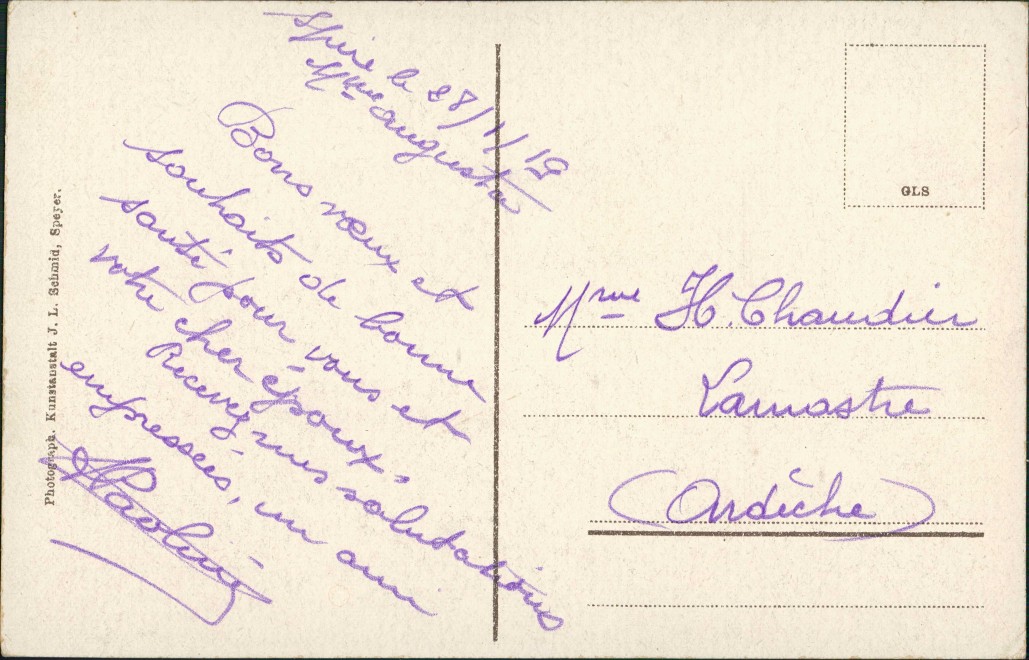 Spire le 28/1/19
Mme Augusta
Bons vœux et
souhaits de bonne
santé pour vous et
votre cher époux.
Recevez mes salutations
empressées, un ami
Photograph. Kunstanstalt J. L. Schmid, Speyer.
GLS
Mme H. Chaudier
Lamastre
(Ardèche)